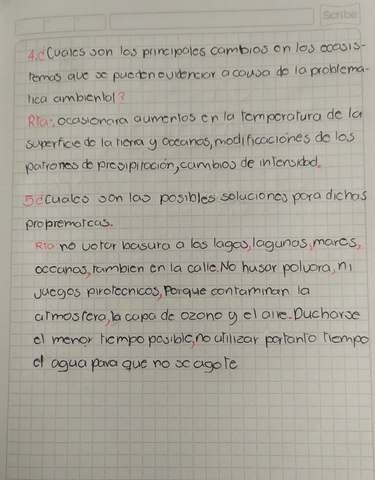 Scribe
4.¿Cuales son los principales cambios en los ecosis-
temas que se pueden evidenciar a causa de la problema-
tica ambiental?
Rta: ocasionara aumentos en la temperatura de la
superficie de la tierra y oceanos, modificaciones de los
patrones de presipitación, cambios de intensidad.
5¿Cuales son las posibles soluciones para dichas
proprematicas.
Rta no votar basura a los lagos, lagunas, mares,
oceanos, tambien en la calle. No husar polvora, ni
juegos pirotecnicos, Porque contaminan la
atmosfera, la capa de ozono y el aire. Ducharse
el menor tiempo posible, no utilizar portanto tiempo
el agua para que no se agote